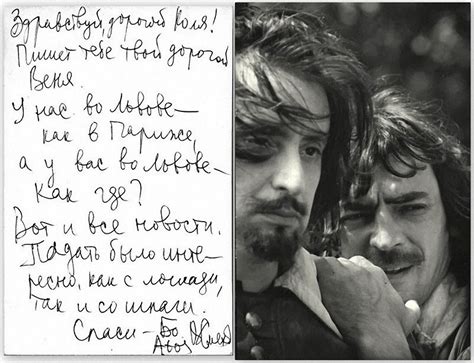 Здравствуй, дорогой Коля!
Пишет тебе твой дорогой
Веня.
У нас во Львове —
как в Париже,
а у вас во Львове —
как где?
Вот и все новости.
Падать было инте-
ресно, как с лошади,
так и со шпаги.
Спаси — Бо
Авой